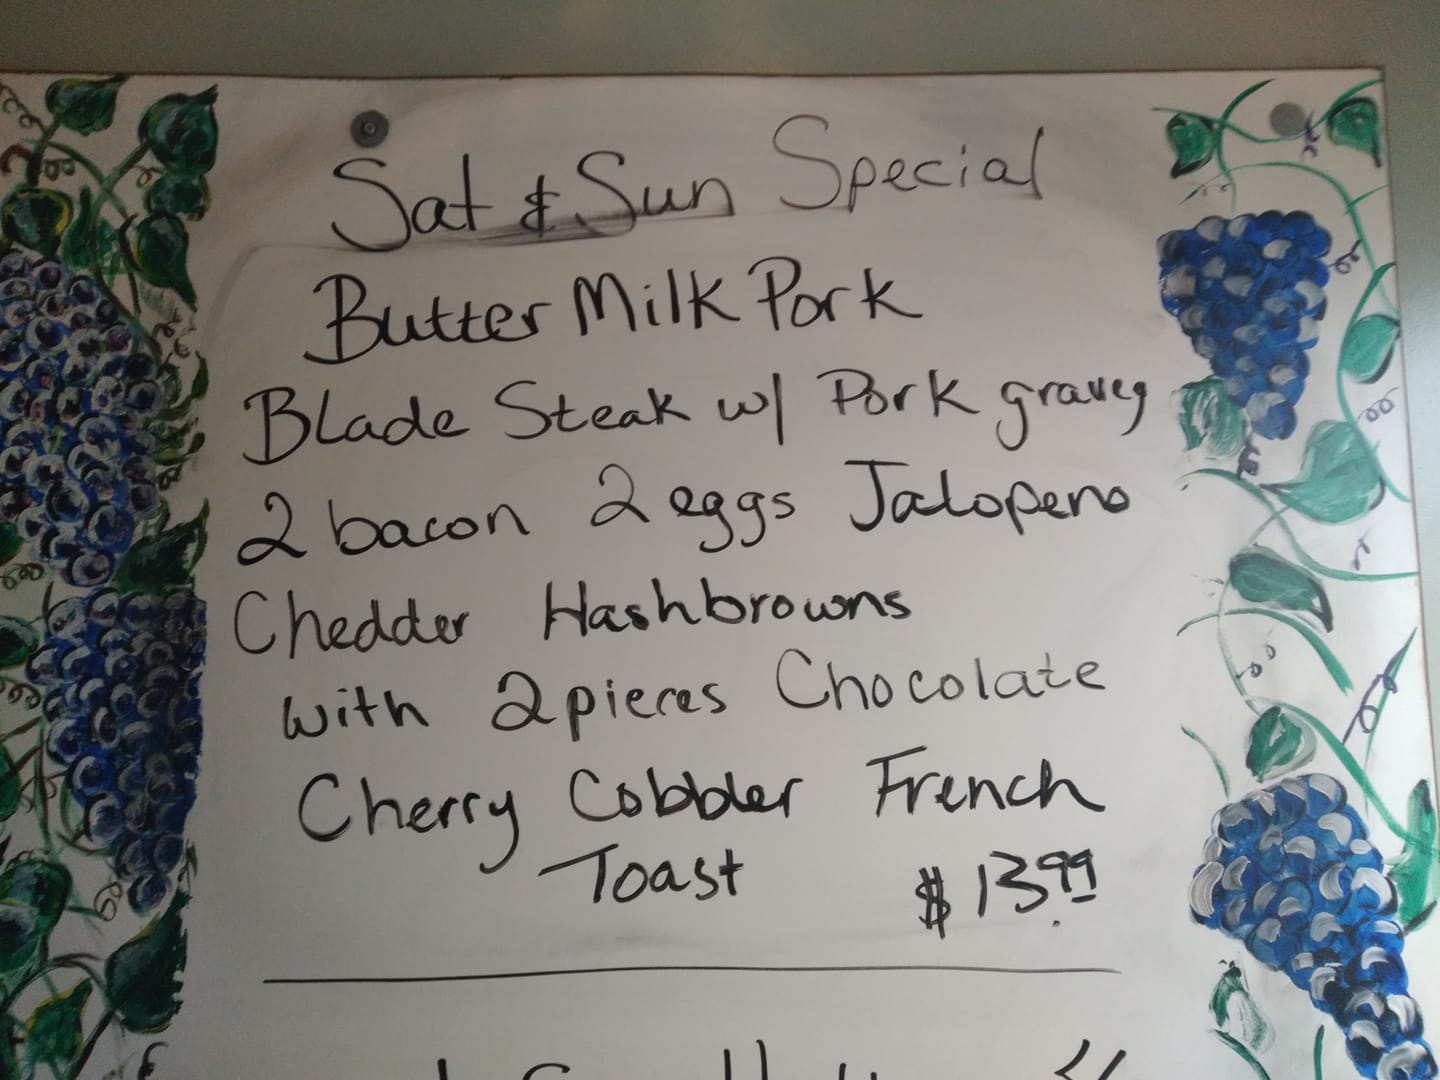 Sat & Sun Special
Butter Milk Pork
Blade Steak w/ Pork gravey
2 bacon 2 eggs Jalopeno
Chedder Hashbrowns
with 2 pieces Chocolate
Cherry Cobbler French
Toast $13.99